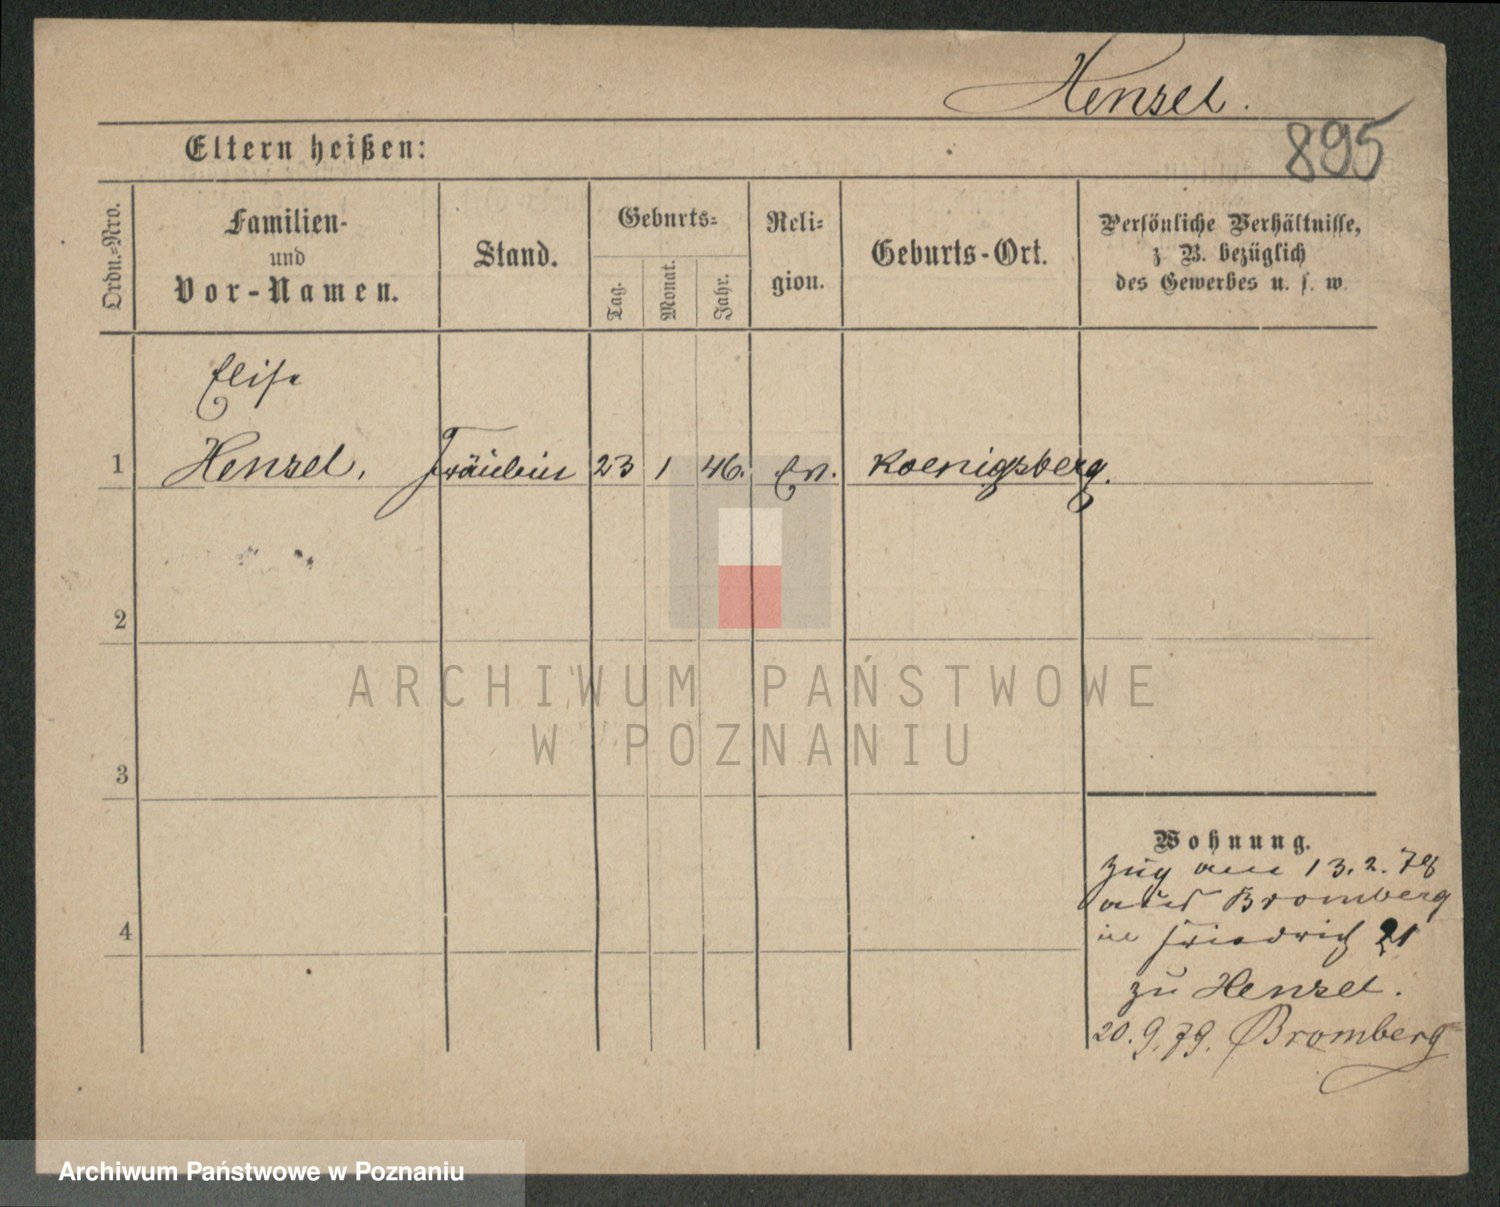 Hensel.
895
Eltern heißen:
Ordn.-Nro.
Familien-
und
Vor-Namen.
Stand.
Geburts-
Tag.
Monat.
Jahr.
Reli-
gion.
Geburts-Ort.
Persönliche Verhältnisse,
z. B. bezüglich
des Gewerbes u. s. w.
Elise
1 Hensel, Fräulein 23 1 46. Ev. Koenigsberg.
2
ARCHIWUM PAŃSTWOWE
W POZNANIU
3
Wohnung.
zug am 13.2.78
aus Bromberg
4
in Friedrich 21
zu Hensel.
20.9.79. Bromberg
Archiwum Państwowe w Poznaniu